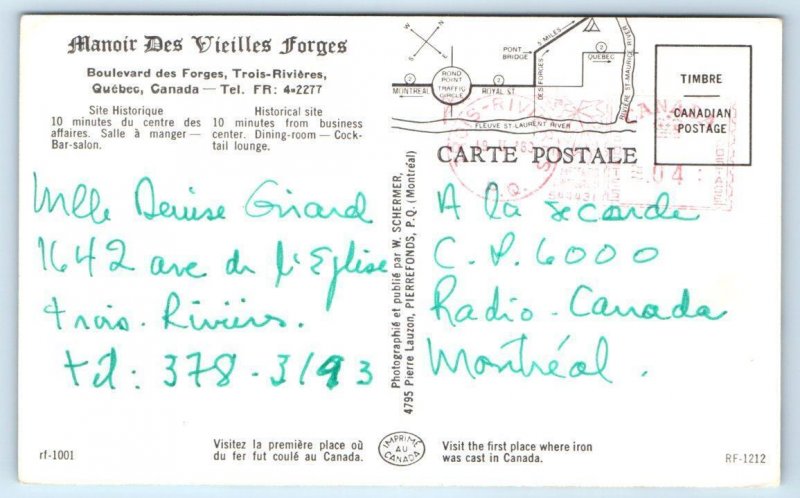 Manoir Des Vieilles Forges
Boulevard des Forges, Trois-Rivières,
Québec, Canada — Tel. FR: 4-2277
Site Historique
10 minutes du centre des
affaires. Salle à manger —
Bar-salon.
Historical site
10 minutes from business
center. Dining-room — Cock-
tail lounge.
N
S
E
W
5 MILES
PONT
BRIDGE
2
QUÉBEC
ROND
POINT
TRAFFIC
CIRCLE
2
MONTRÉAL
2
ROYAL ST.
DES FORGES
RIVIÈRE ST-MAURICE RIVER
FLEUVE ST-LAURENT RIVER
CARTE POSTALE
TIMBRE
CANADIAN
POSTAGE
TROIS-RIVIÈRES
P.Q.
CANADA
04
Mlle Denise Girard
1642 ave de l'Eglise
Trois-Rivières.
tél: 378-3193
Photographié et publié par W. SCHERMER,
4795 Pierre Lauzon, PIERREFONDS, P.Q. (Montréal)
A la seconde
C.P. 6000
Radio-Canada
Montréal.
rf-1001
Visitez la première place où
du fer fut coulé au Canada.
IMPRIMÉ
AU
CANADA
Visit the first place where iron
was cast in Canada.
RF-1212